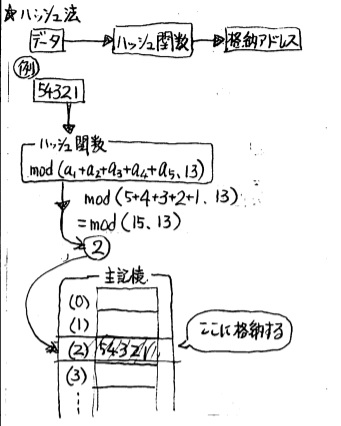 ☆ハッシュ法
データ → ハッシュ関数 → 格納アドレス
例
54321
ハッシュ関数
mod(a1+a2+a3+a4+a5, 13)
mod(5+4+3+2+1, 13)
=mod(15, 13)
2
主記憶
(0)
(1)
(2) 54321 ここに格納する
(3)
⋮